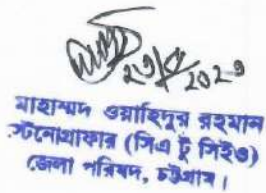 ২৩/৫/২০২৩
মোহাম্মদ ওয়াহিদুর রহমান
স্টেনোগ্রাফার (সিএ টু সিইও)
জেলা পরিষদ, চট্টগ্রাম।